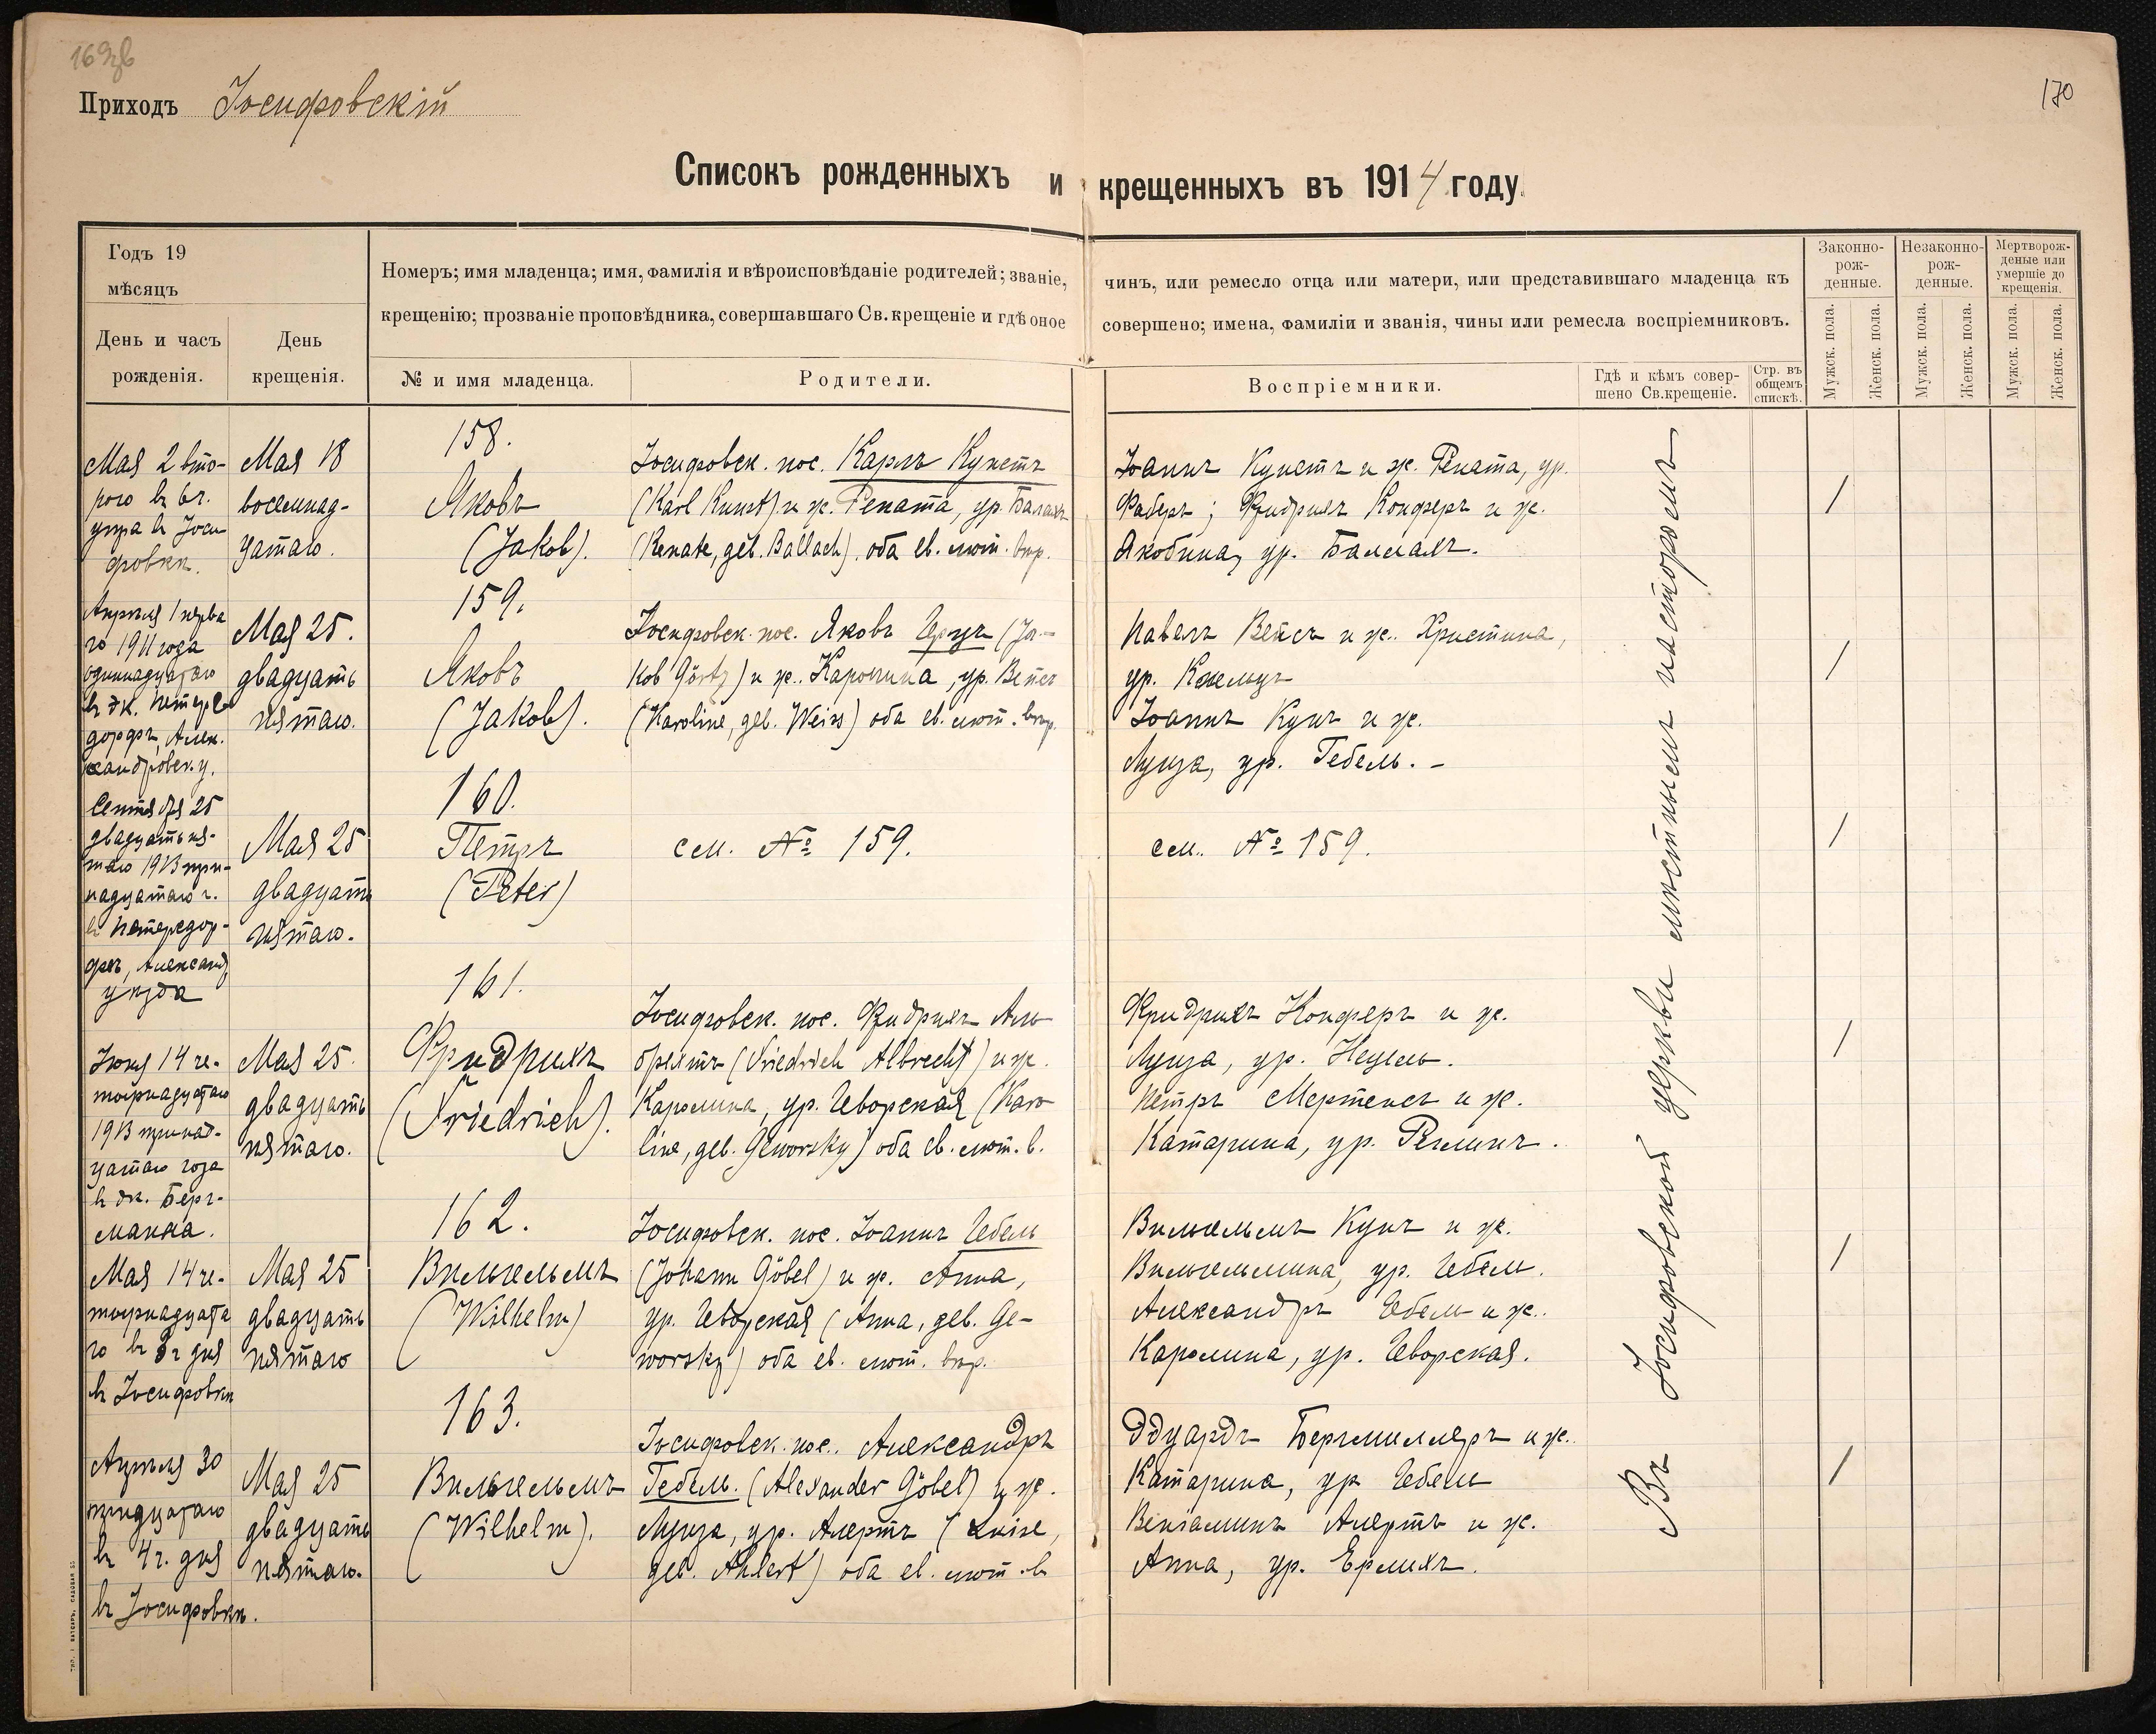 169зв
170
Приходъ Іосифовскій
Списокъ рожденныхъ и крещенныхъ въ 1914 году.
Годъ 19
мѣсяцъ
День и часъ
рожденія.
День
крещенія.
Номеръ; имя младенца; имя, фамилія и вѣроисповѣданіе родителей; званіе,
крещенію; прозваніе проповѣдника, совершавшаго Св. крещеніе и гдѣ оное
№ и имя младенца.
Родители.
чинъ, или ремесло отца или матери, или представившаго младенца къ
совершено; имена, фамиліи и званія, чины или ремесла воспріемниковъ.
Воспріемники.
Гдѣ и кѣмъ совер-
шено Св.крещеніе.
Стр. въ
общемъ
спискѣ.
Законно-
рож-
денные.
Незаконно-
рож-
денные.
Мертворож-
деные или
умершіе до
крещенія.
Мужск. пола.
Женск. пола.
Мужск. пола.
Женск. пола.
Мужск. пола.
Женск. пола.
Мая 2 вто-
рого въ 6 ч.
утра въ Іоси
фовкѣ.
Мая 18
восемнад-
цатаго.
158.
Яковъ
(Jakob).
Іосифовск. пос. Карлъ Кунстъ
(Karl Kunst) и ж. Рената, ур. Балахъ
(Renate, geb. Ballach). оба ев. лют. вѣр.
Іоаннъ Кунстъ и ж. Рената, ур.
Фаберъ; Фридрихъ Конферъ и ж.
Якобина, ур. Баллахъ.
/
Апрѣля 1 перва
го 1911 года
одиннадцатаго
въ дк. Петерс
дорфъ, Алек.
сандровск. у.
Мая 25.
двадцать
пятаго.
159.
Яковъ
(Jakob).
Іосифовск. пос. Яковъ Герцъ (Ja-
kob Görtz) и ж. Каролина, ур. Вейсъ
(Karoline, geb. Weiss) оба ев. лют. вѣр.
Павелъ Вейсъ и ж. Христина,
ур. Кнельцъ
Іоаннъ Кунъ и ж.
Луиза, ур. Гебель. -
/
Сентября 25
двадцать пя-
таго 1913 три-
надцатаго г.
въ Петерсдор-
фѣ, Александ.
уѣзда
Мая 25
двадцать
пятаго.
160.
Петръ
(Peter)
см. № 159.
см. № 159.
/
Іюня 14 че-
тырнадцатаго
1913 тринад-
цатаго года
въ дк. Берг-
манка.
Мая 25.
двадцать
пятаго.
161.
Фридрихъ
(Friedrich).
Іосифовск. пос. Фридрихъ Аль
брехтъ (Friedrich Albrecht) и ж.
Каролина, ур. Геворская (Karo
line, geb. Geworsky) оба ев. лют. в.
Фридрихъ Конферъ и ж.
Луиза, ур.
Петръ Мертенсъ и ж.
Катарина, ур.
/
Мая 14 че-
тырнадцата
го въ 3 ч дня
въ Іосифовкѣ
Мая 25
двадцать
пятаго
162.
Вильгельмъ
(Wilhelm)
Іосифовск. пос. Іоаннъ Гебель
(Johann Göbel) и ж. Анна,
ур. Геворская (Anna, geb. Ge-
worsky) оба ев. лют. вѣр.
Вильгельмъ Кунъ и ж.
Вильгельмина, ур. Гебель.
Александръ Гебель и ж.
Каролина, ур. Геворская.
/
Апрѣля 30
тридцатаго
въ 4 ч. дня
въ Іосифовкѣ.
Мая 25
двадцать
пятаго.
163.
Вильгельмъ
(Wilhelm).
Іосифовск. пос. Александръ
Гебель. (Alexander Göbel) и ж.
Луиза, ур. Алертъ (Luise,
geb. Ahlert) оба ев. лют. в
Эдуардъ Бергмиллеръ и ж.
Катарина, ур Гебель
Веніаминъ Алертъ и ж.
Анна, ур. Ерлихъ.
/
Въ Іосифовской церкви мѣстнымъ пасторомъ